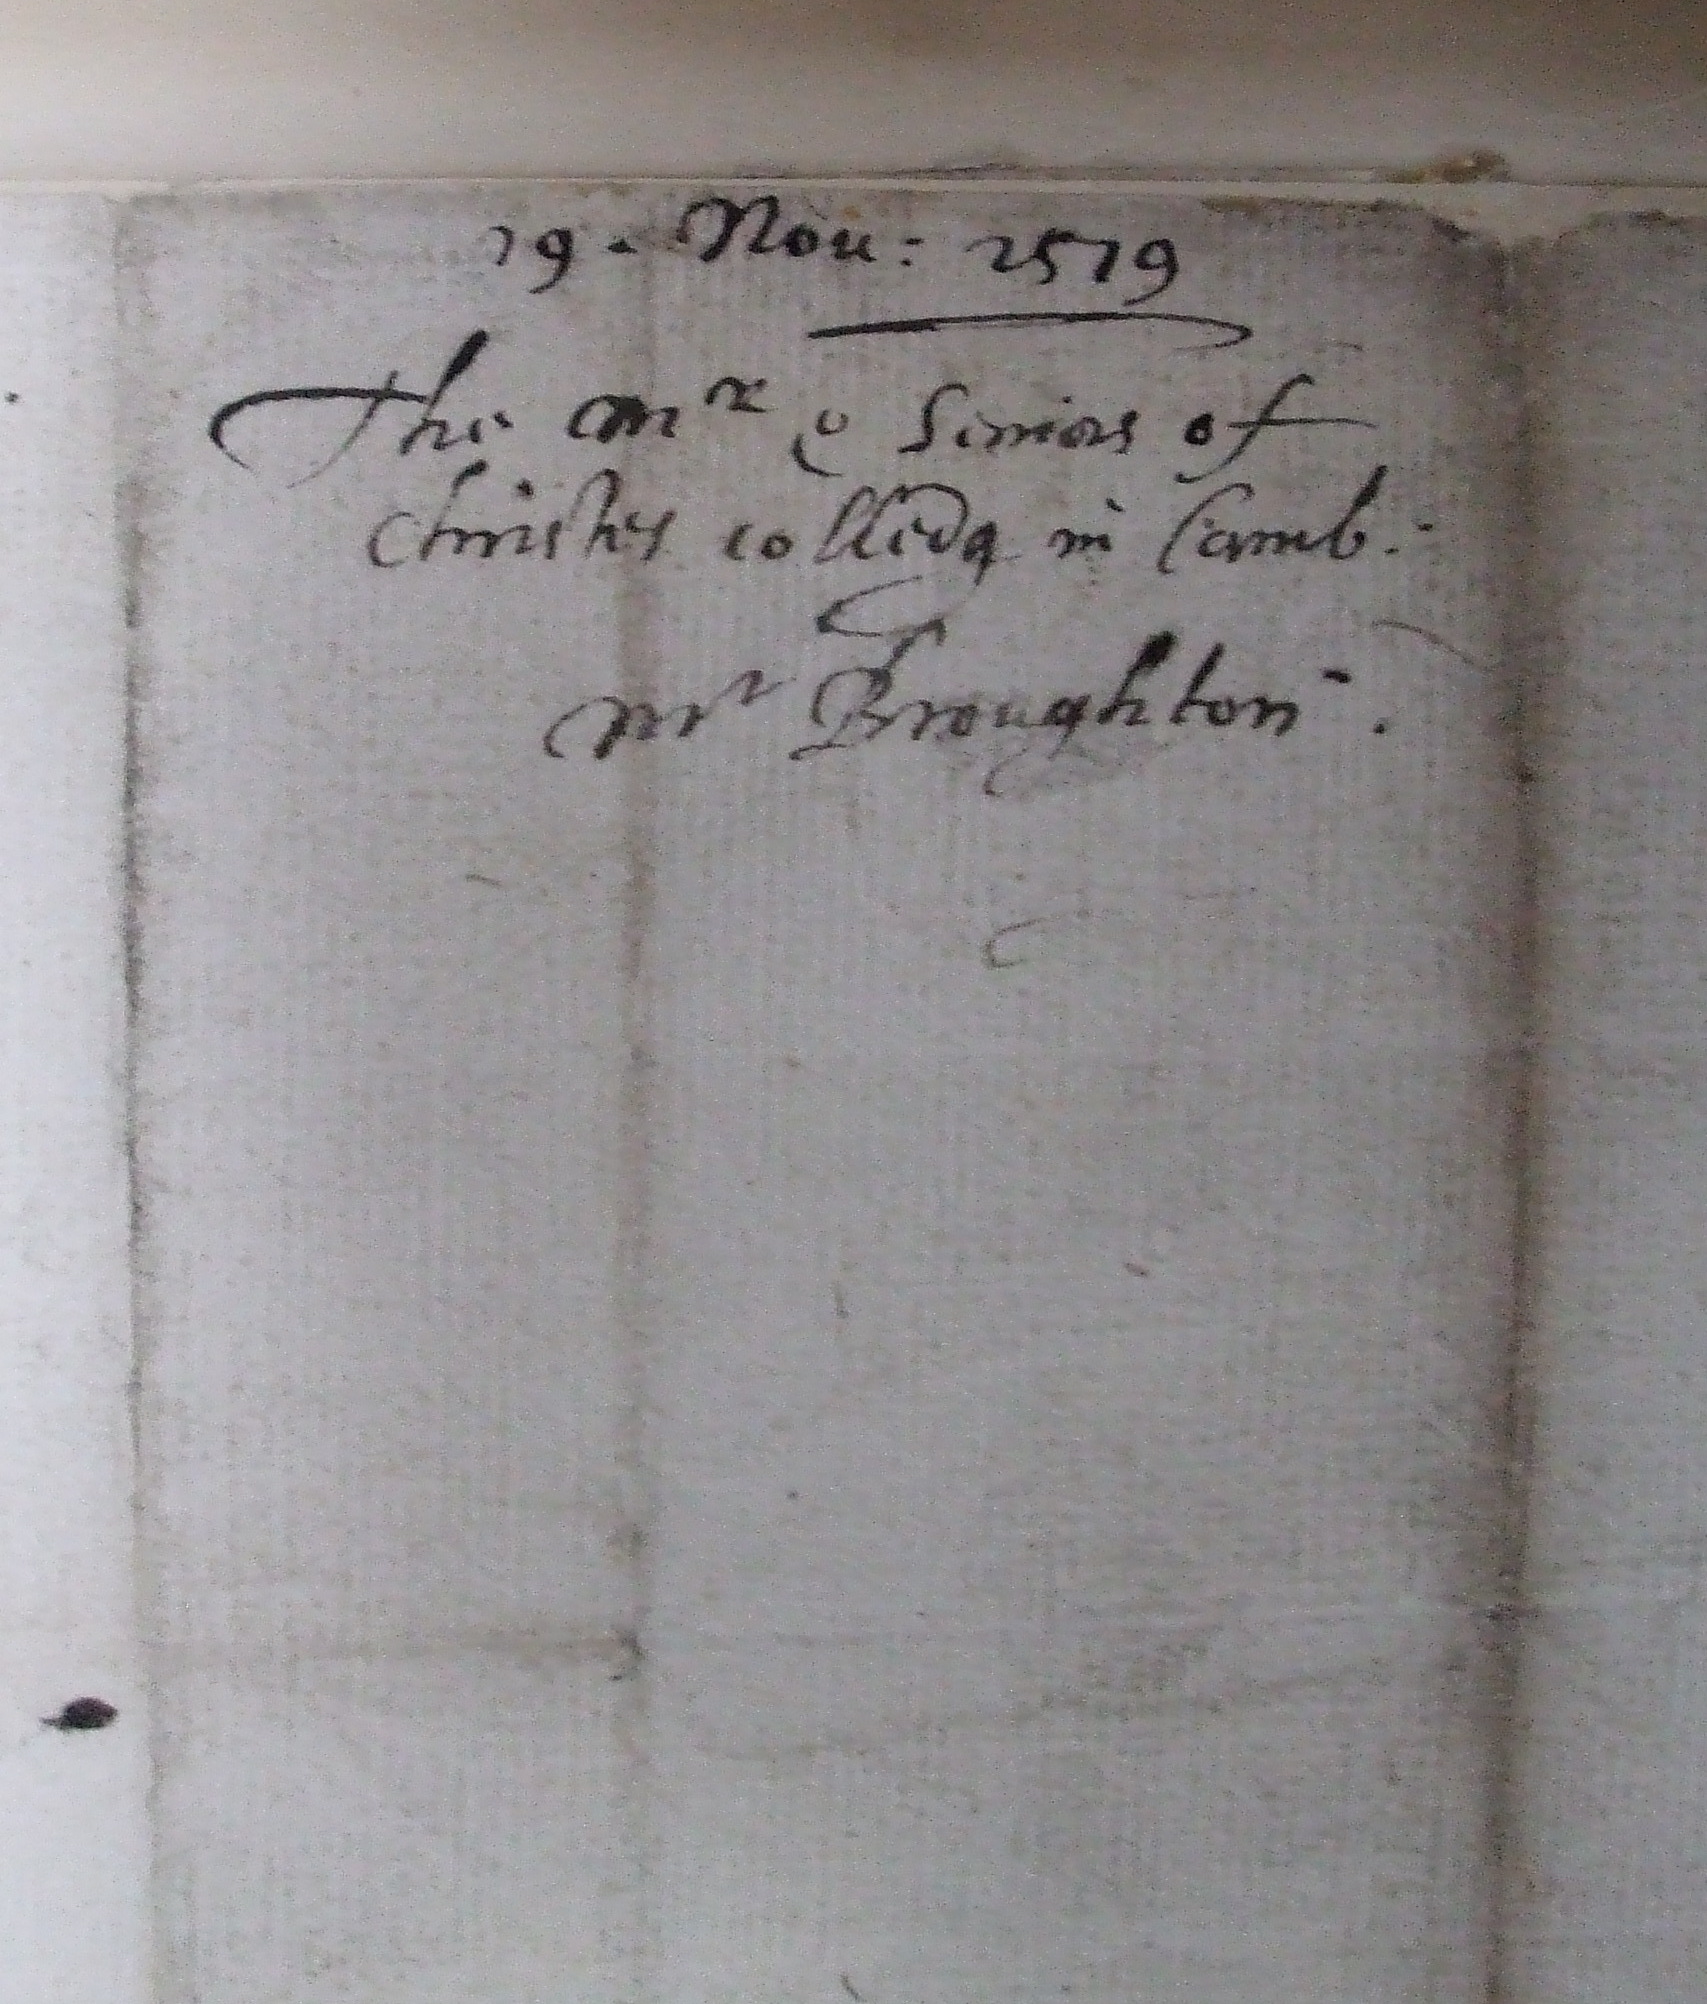 19 · Nou: 1579
The mr & Seniors of
christes colledg in Camb:
mr Broughton .